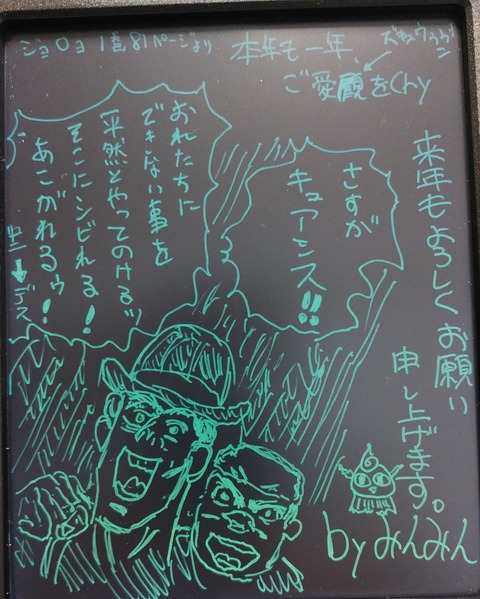 ジョロョ1巻81ページより
本年も一年、
ご愛顧をくny
ズキュウゥゥン
来年もよろしくお願い
申し上げます。
さすが
キュアミンス!!
おれたちに
できない事を
平然とやってのけるッ
そこにシビれる!
あこがれるゥ!
デス
by みんみん